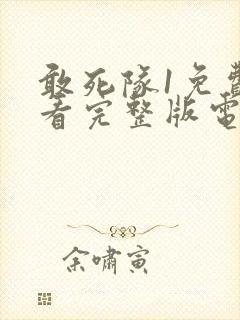 敢死隊1免費
看完整版電
余嘯寅